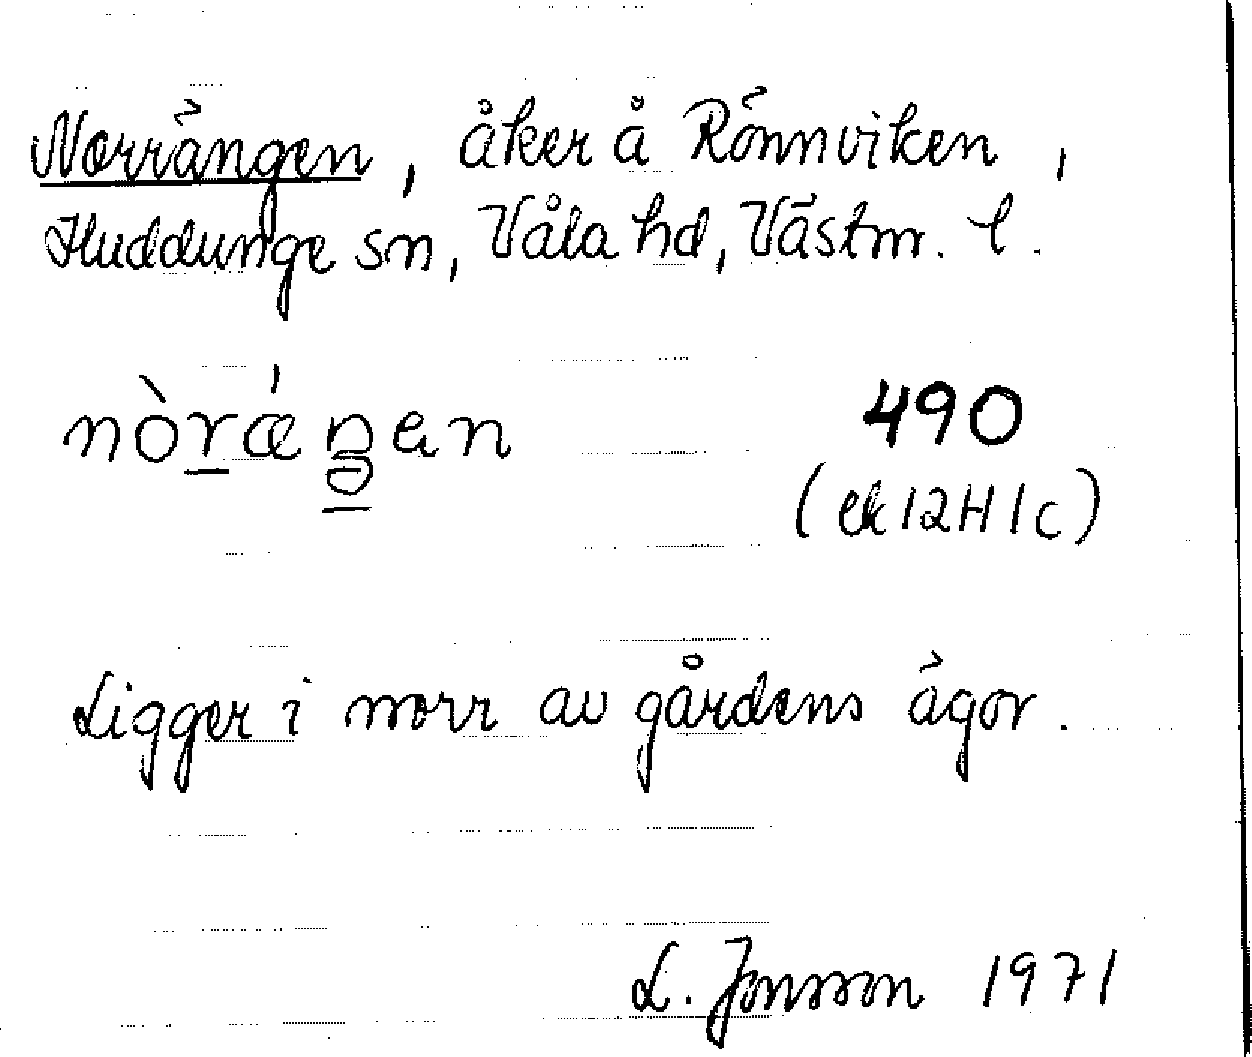 Norrängen, åker å Rönnviken,
Huddunge sn, Våla hd, Västm. l.
nòrǽŋan 490
(ek 12H1c)
Ligger i norr av gårdens ägor.
L. Jonsson 1971